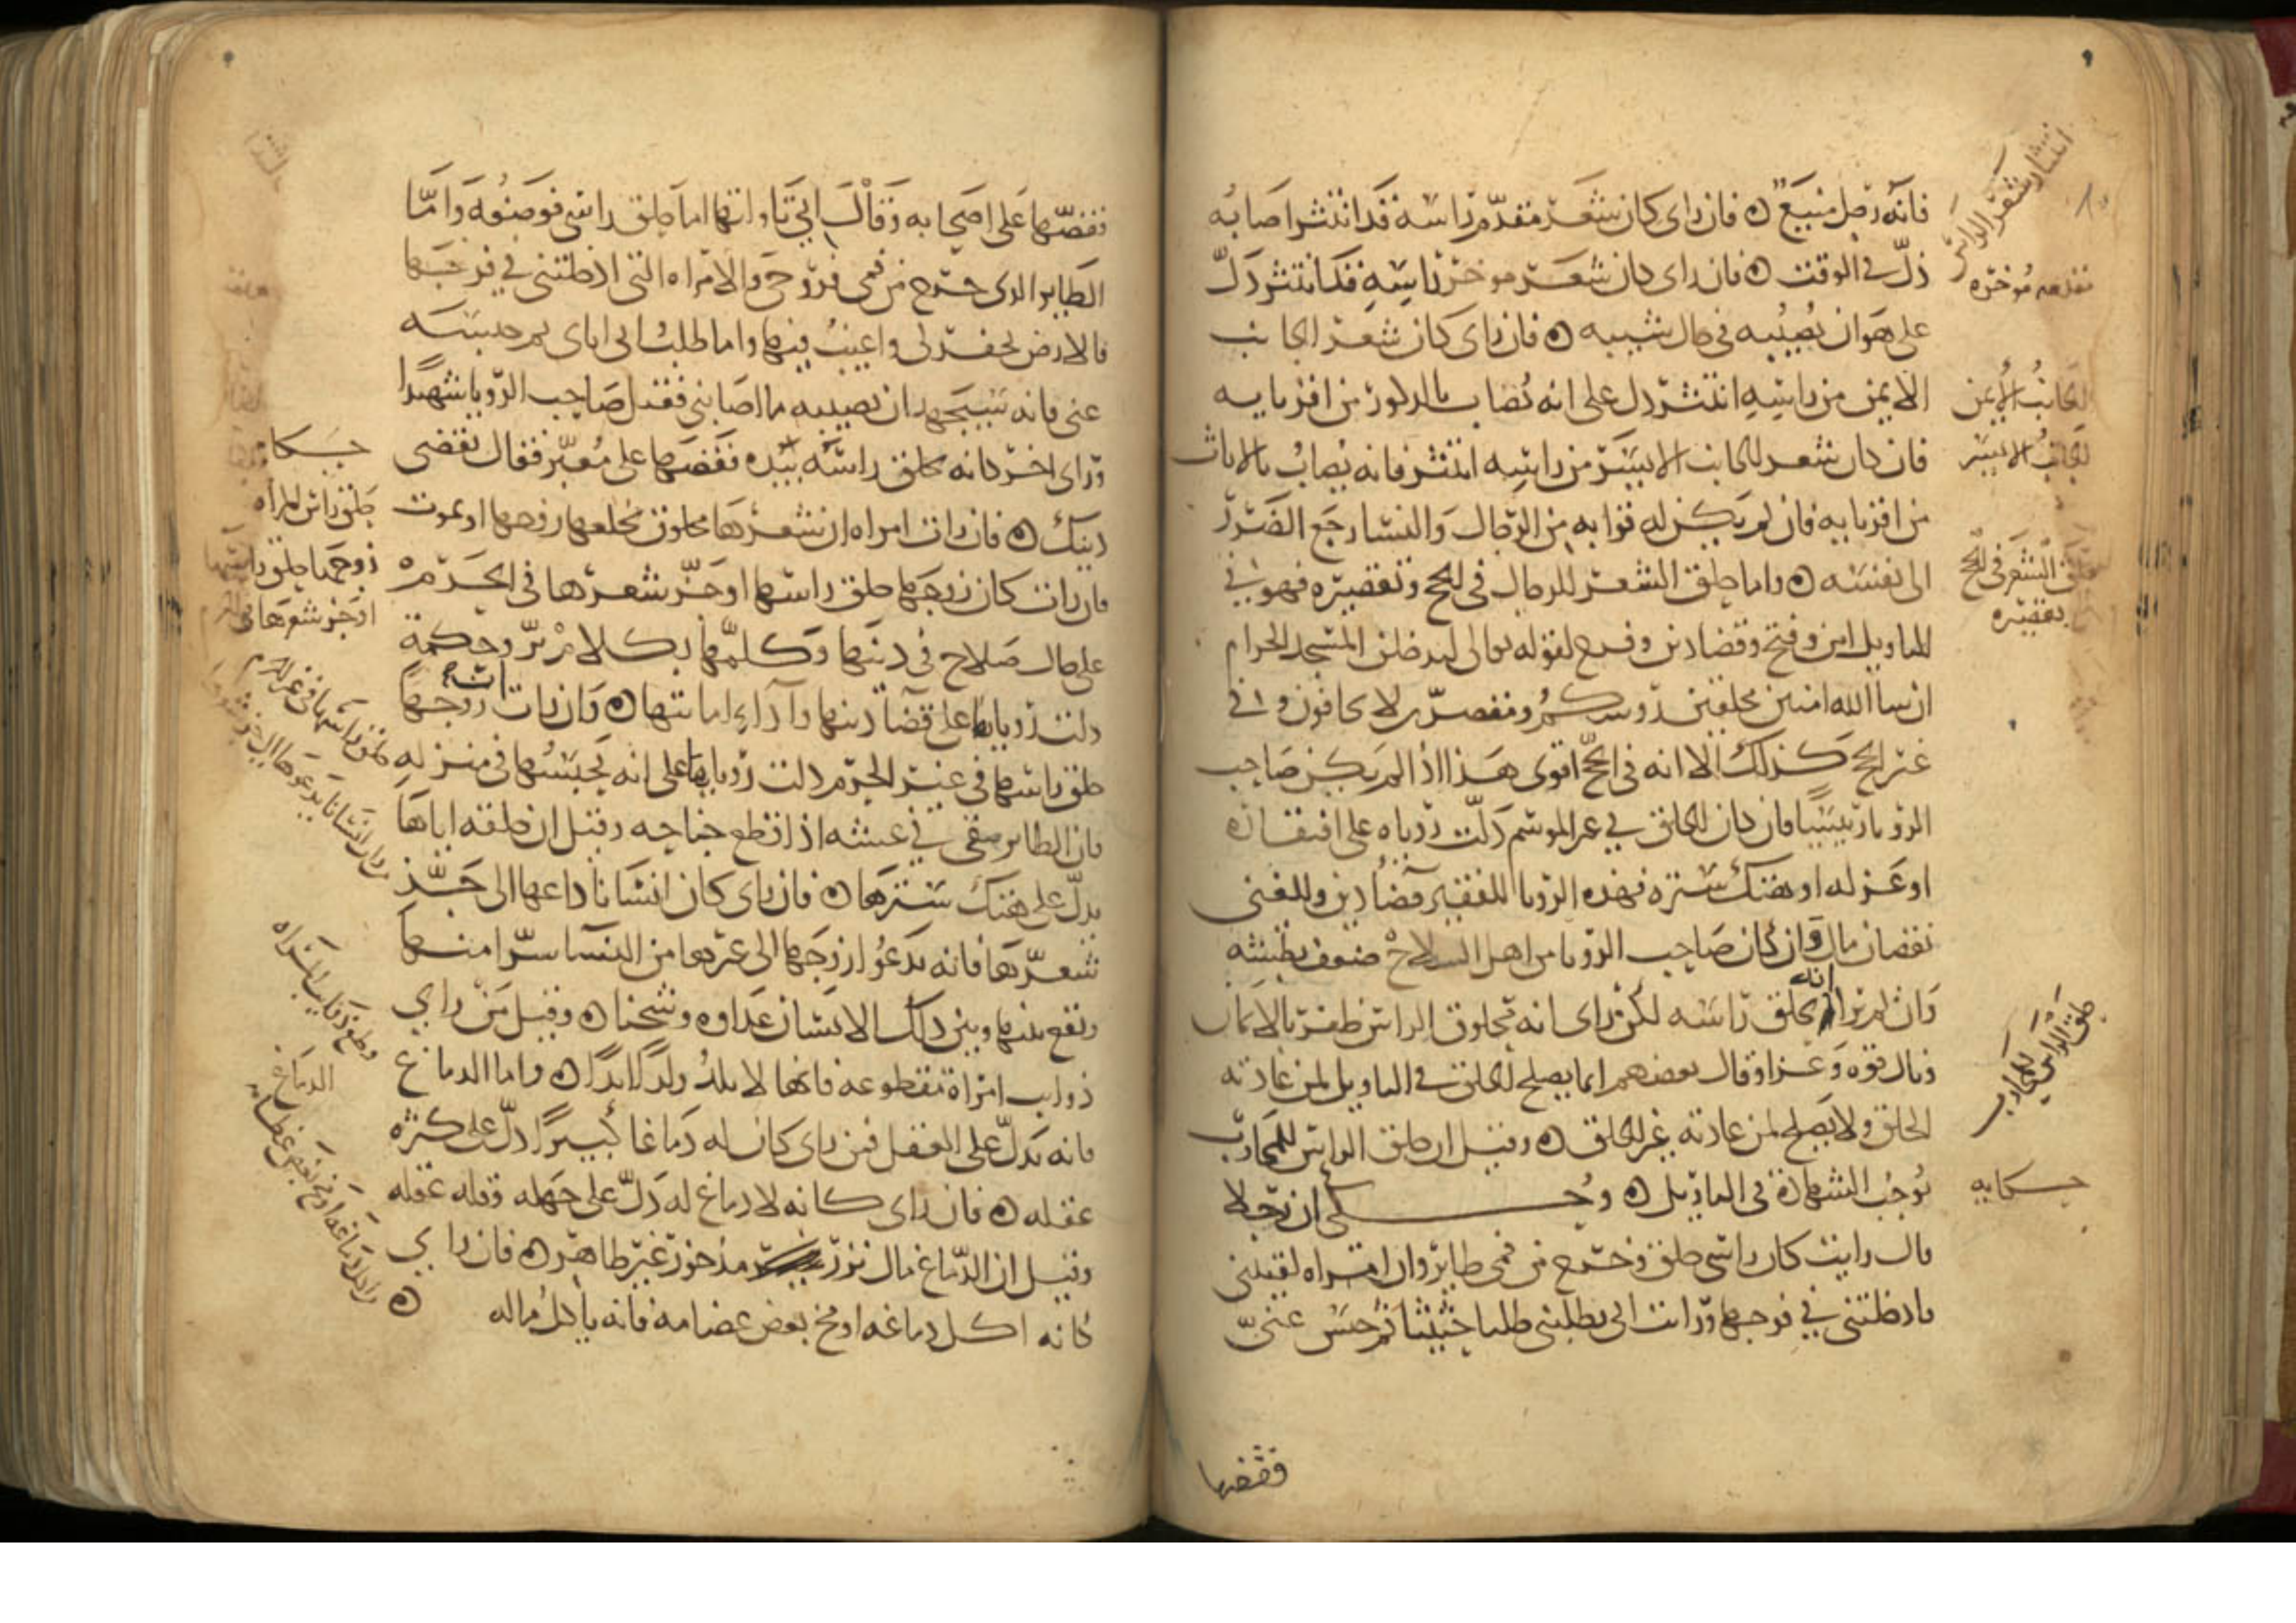 فانه رجل منيع ۞ فان راى كان شعر مقدم راسه قد انتثر اصابه
ذل في الوقت ۞ فان راى كان شعر موخر راسه قد انتثر دل
على هوان يصيبه في حال شيبه ۞ فان راى كان شعر الجانب
الايمن من راسه انتثر دل على انه يصاب بالذكور من اقربايه
فان كان شعر الجانب الايسر من راسه انتثر فانه يصاب بالاناث
من اقربايه فان لم يكن له قرابه من الرجال والنسا رجع الضرر
الى نفسه ۞ واما حلق الشعر للرجال في الحج وتقصيره فهو في
التاويل امن وفتح وقضا دين وفرج لقوله تعالى لتدخلن المسجد الحرام
ان شا الله امنين محلقين روسكم ومقصرين لا تخافون وفي
غير الحج كذلك الا انه في الحج اقوى هذا اذا لم يكن صاحب
الرويا رييسا فان كان الحالق في غير الموسم دلت روياه على افتقاره
او عزله او هتك ستره فهذه الرويا للفقير قضا دين وللغنى
نقصان مال وان كان صاحب الرويا من اهل السلاح ضعف بطشه
وان لم ير انه يحلق راسه لكن راى انه محلوق الراس ظفر بالامان
ونال قوه وعزا وقال بعضهم انما يصلح الحلق في التاويل لمن عادته
الحلق ولا يصلح لمن عادته غير الحلق ۞ وقيل ان حلق الراس للمحارب
يوجب الشهادة في التاويل ۞ وحكى ان رجلا
قال رايت كان راسي حلق وخرج من فمي طاير وان امراه لقيتني
فادخلتني في فرجها ورايت ابي يطلبني طلبا حثيثا ثم حبس عني
فقصها
انتثار شعر الراس
مقدمه موخره
الجانب الايمن
الجانب الايسر
حلق الشعر في الحج
تقصيره
حلق الراس للمحارب
حكايه
فقصها على اصحابه وقال اني تاولتها اما حلق راسي فوضعه واما
الطاير الذي خرج من فمي فروحي والامراه التي ادخلتني في فرجها
فالارض تحفر لي واغيب فيها واما طلب ابي اياى ثم حبسه
عني فانه سيجهد ان يصيبه ما اصابني فقتل صاحب الرويا شهيدا
وراى اخر كانه حلق راسه بيده فقصها على معبر فقال تقضى
دينك ۞ فان رات امراه ان شعرها محلوق يخلعها زوجها او يموت
فان رات كان زوجها حلق راسها او جز شعرها في الحرم
على صلاح في دينها وكلمها بكلام بر وحكمة
دلت روياها على قضا دينها واداء امانتها ۞ وان رات ان زوجها
حلق راسها في غير الحرم دلت روياها على انه يحبسها في منزله
فان الطاير يبقى في عشه اذا قطع جناحه وقيل ان حلقه اياها
يدل على هتك سترها ۞ فان راى كان انسانا دعاها الى جز
شعرها فانه يدعو زوجها الى غيرها من النسا سرا منها
وتقع بينها وبين ذلك الانسان عداوه وشحنا ۞ وقيل من راى
ذوايب امراة مقطوعه فانها لا تلد ولدا ابدا ۞ واما الدماغ
فانه يدل على العقل فمن راى كان له دماغا كبيرا دل على كثره
عقله ۞ فان راى كانه لا دماغ له دل على جهله وقله عقله
وقيل ان الدماغ مال نزر مذخور غير طاهر ۞ فان راى
كانه اكل دماغه او مخ بعض عظامه فانه ياكل ماله ۞
حكايه
حلق راس المراه
زوجها حلق راسها
او جز شعرها في الحرم
وقطع ذوايب المراه
الدماغ